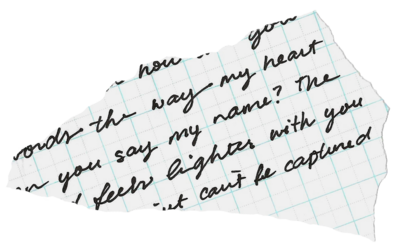 how you
ords the way my heart
n you say my name? The
feels lighter with you
it can't be captured